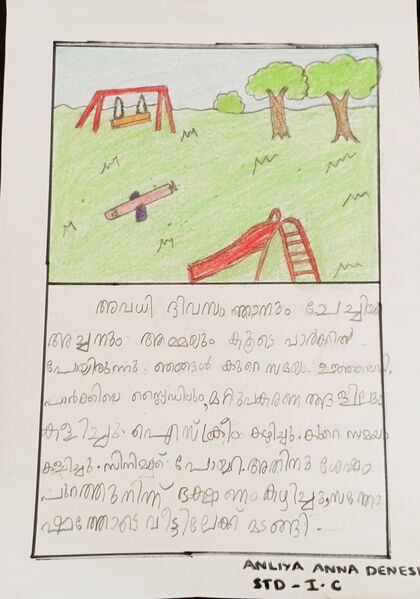 അവധി ദിവസം ഞാനും ചേച്ചിയും
അച്ഛനും അമ്മയും കൂടെ പാർക്കിൽ
പോയിരുന്നു. ഞങ്ങൾ കുറെ സമയം
പാർക്കിലെ സ്ലൈഡിലും, മറ്റുപകരണങ്ങളിലും
കളിച്ചു. ഐസ്ക്രീം കഴിച്ചു. കുറെ സമയം
കളിച്ചു. സിനിമക്ക് പോയി. അതിനു ശേഷം
പുറത്തുനിന്ന് ഭക്ഷണം കഴിച്ചു. സന്തോ
ഷത്തോടെ വീട്ടിലേക്ക് മടങ്ങി.
ANLIYA ANNA DENESH
STD - I - C